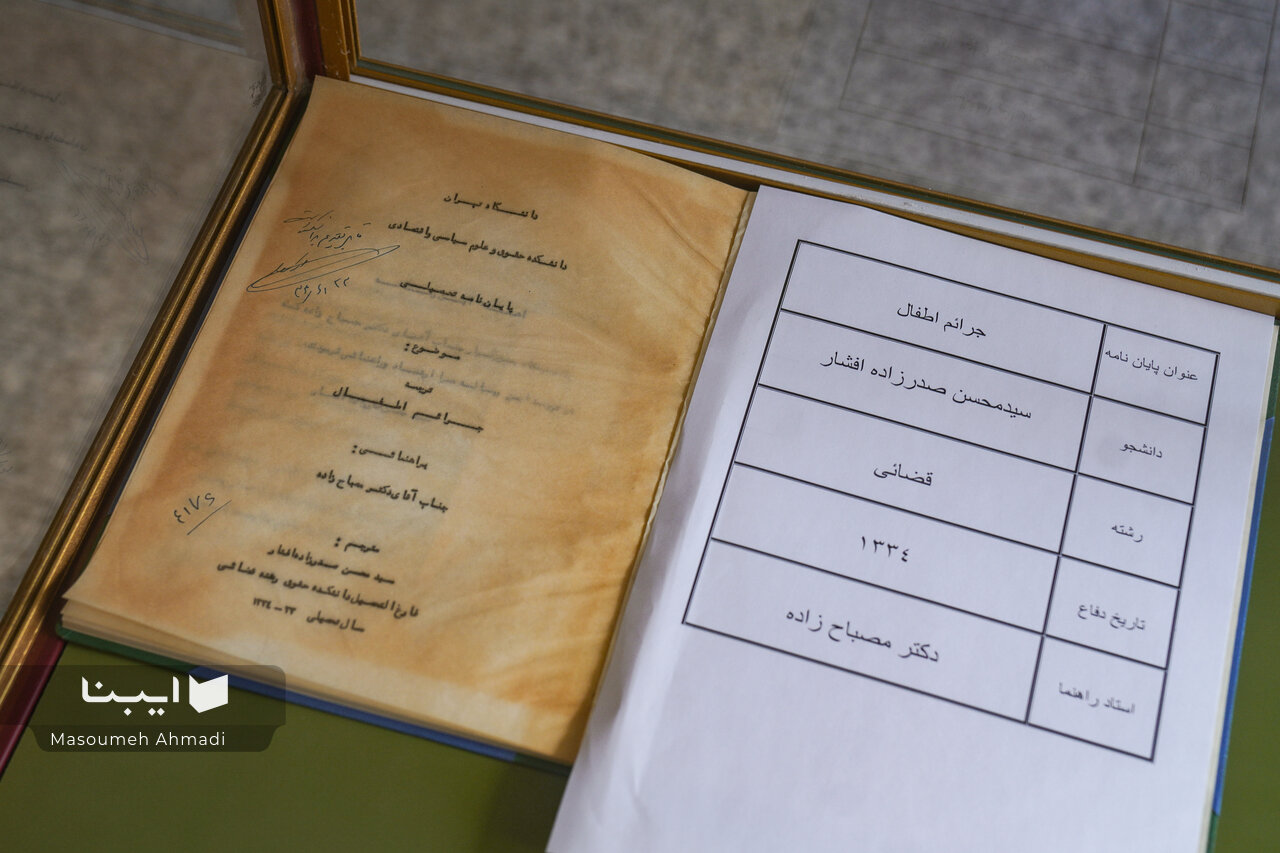 دانشگاه تهران
دانشکده حقوق و علوم سیاسی و اقتصادی
پایان نامه تحصیلی
موضوع :
ترجمه
جرائم اطفال
براهنمائی :
جناب آقای دکتر مصباح زاده
مترجم :
سید محسن صدرزاده افشار
فارغ التحصیل دانشکده حقوق رشته قضائی
سال تحصیلی ۳۳ - ۱۳۳۴
۴۱۷۶
عنوان پایان نامه جرائم اطفال
دانشجو سیدمحسن صدرزاده افشار
رشته قضائی
تاریخ دفاع ۱۳۳٤
استاد راهنما دکتر مصباح زاده
ایبنا
Masoumeh Ahmadi